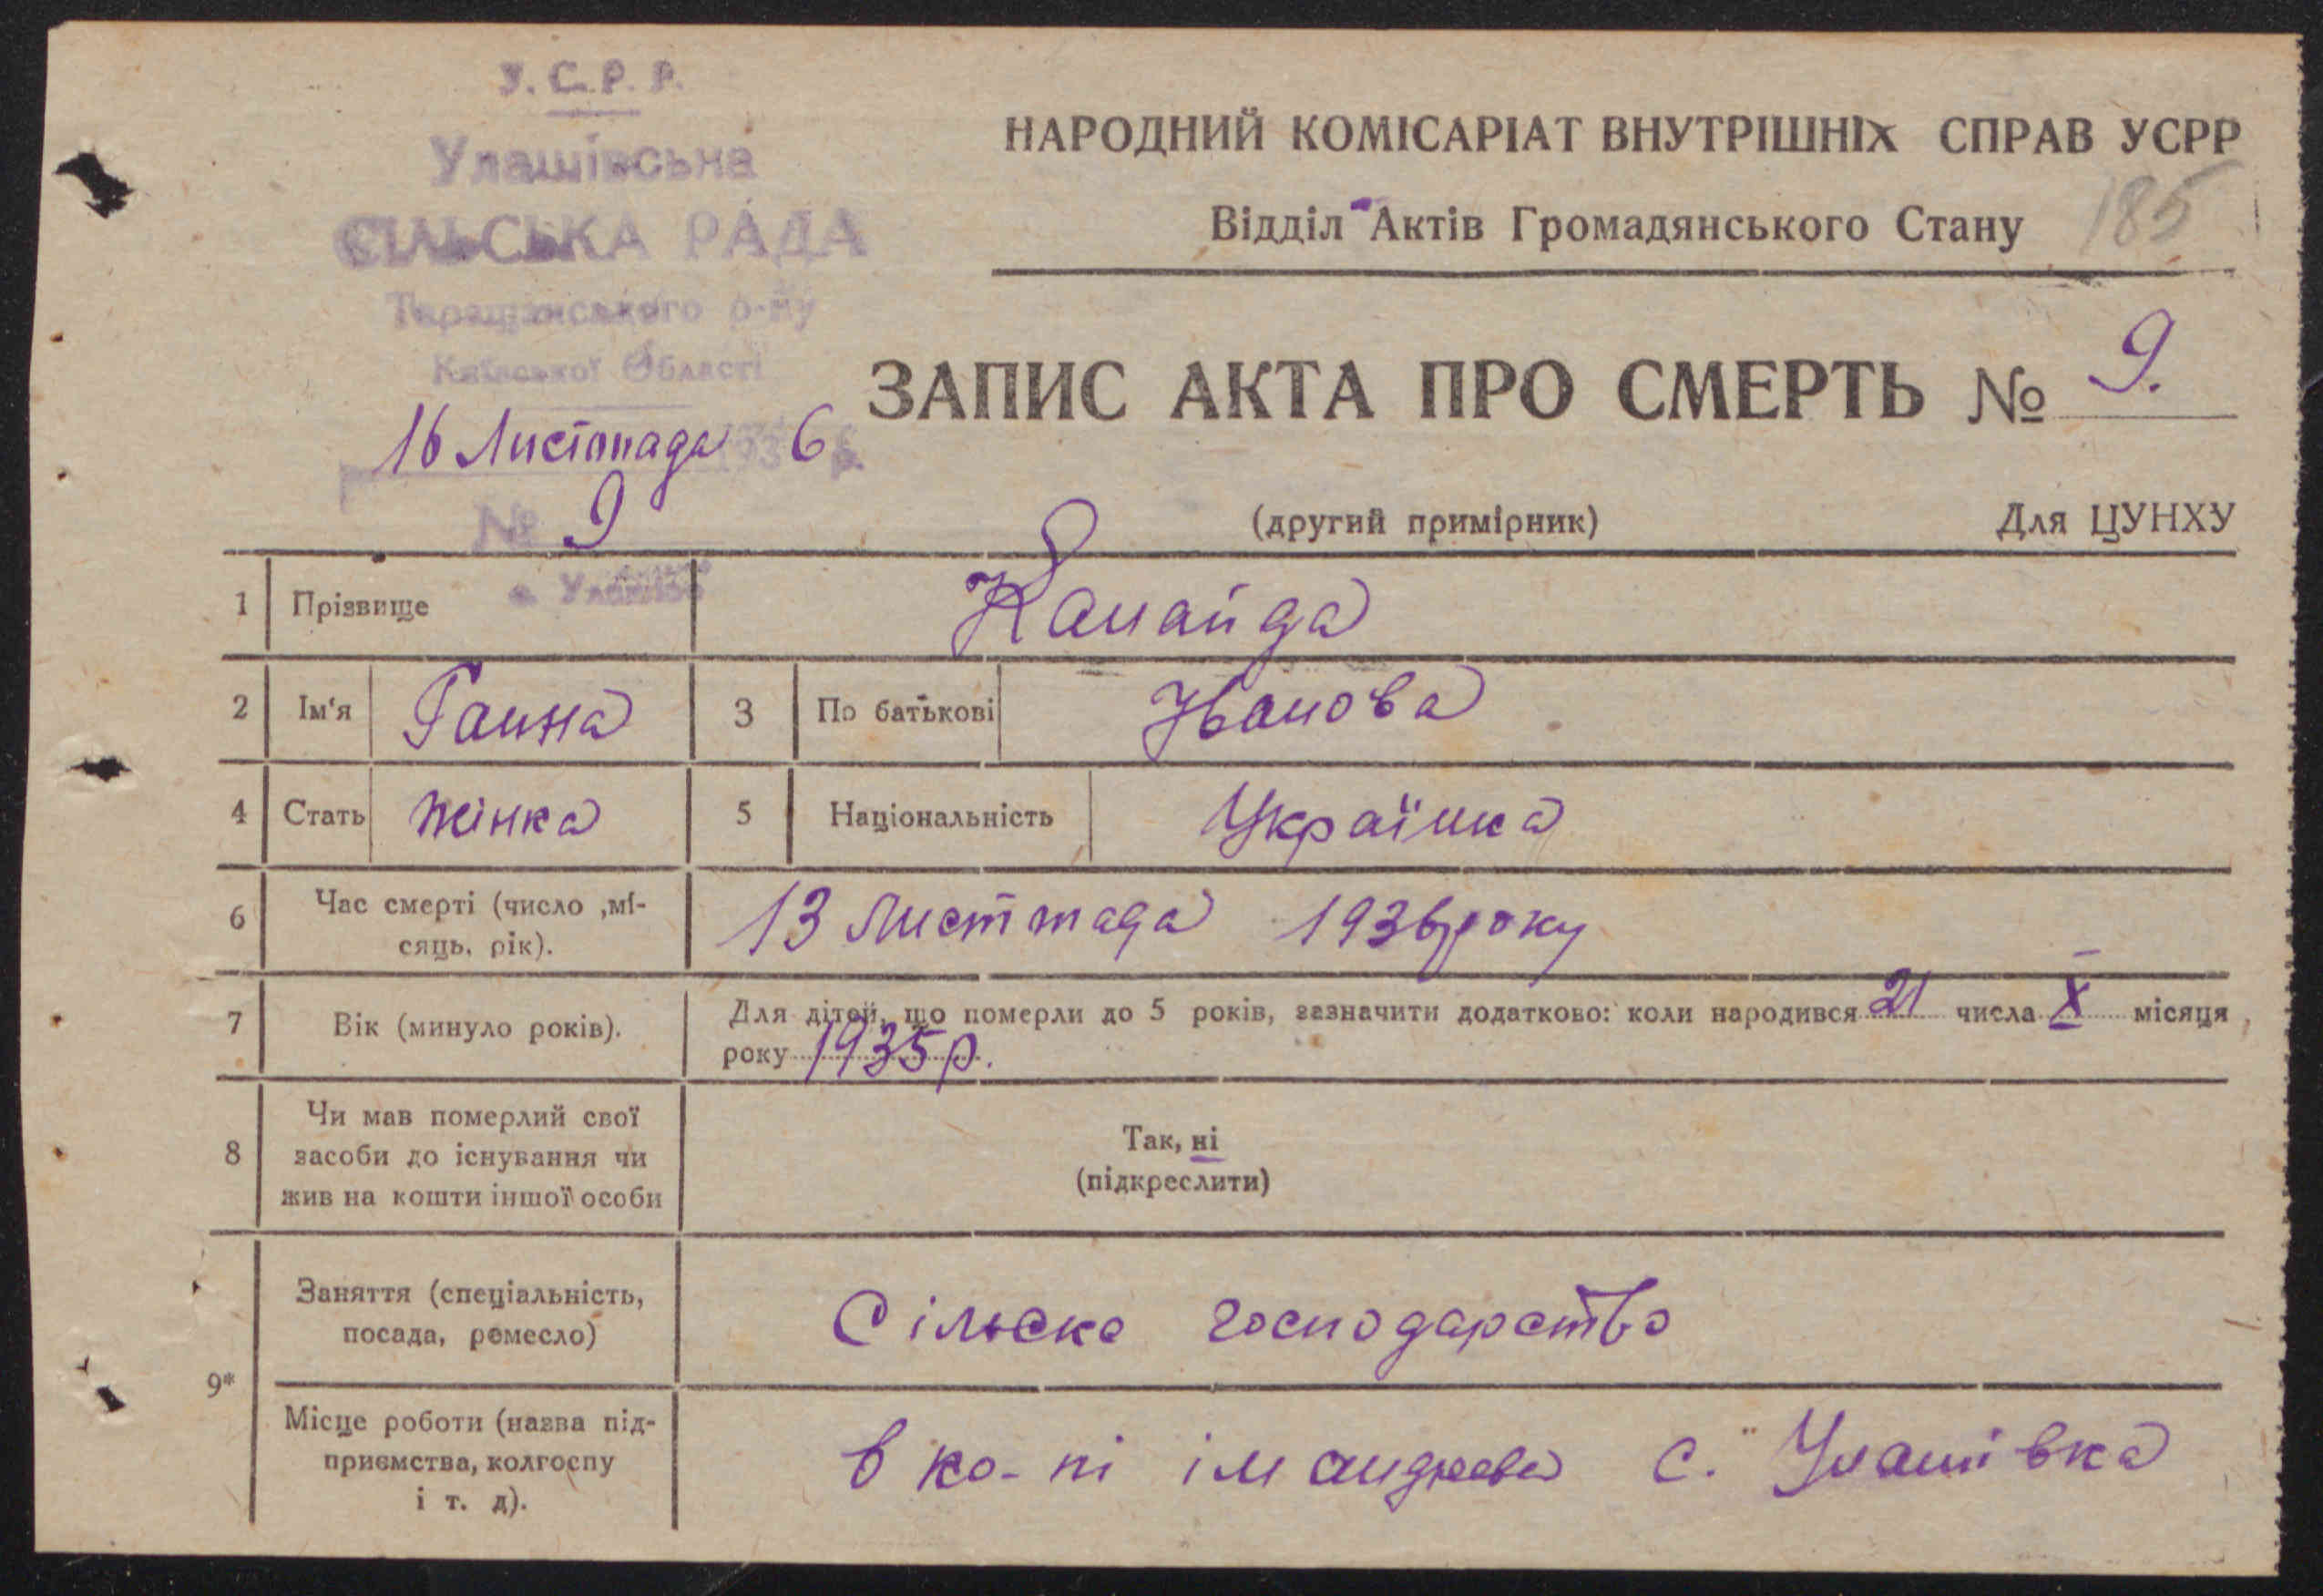 У.С.Р.Р.
Улашівська
СІЛЬСЬКА РАДА
Таращанського р-ну
Київської Області
16 Листопада 1936 р.
№ 9
с. Улашівка
НАРОДНИЙ КОМІСАРІАТ ВНУТРІШНІХ СПРАВ УСРР
Відділ Актів Громадянського Стану
185
ЗАПИС АКТА ПРО СМЕРТЬ № 9.
(другий примірник)
Для ЦУНХУ
1 Прізвище Канайда
2 Ім'я Ганна 3 По батькові Іванова
4 Стать жінка 5 Національність Українка
6 Час смерті (число ,мі-
сяць, рік).
13 листтпада 1936 року
7 Вік (минуло років).
Для дітей, що померли до 5 років, зазначити додатково: коли народився 21 числа X місяця
року 1935 р.
8 Чи мав померлий свої
засоби до існування чи
жив на кошти іншої особи
Так, ні
(підкреслити)
9*
Заняття (спеціальність,
посада, ремесло)
Сільско господарство
Місце роботи (назва під-
приємства, колгоспу
і т. д).
в ко-пі ім с. Улашівка